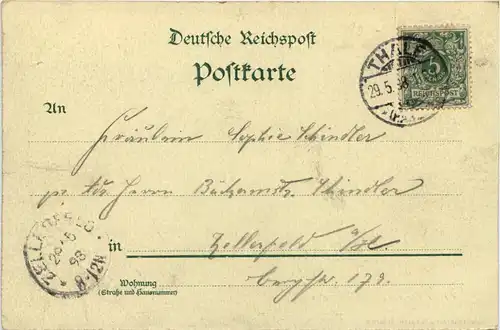 Deutsche Reichspost
Postkarte
An
Fräulein Sophie Schindler
Herrn Schindler
in Zellerfeld a/H.
Wohnung
(Straße und Hausnummer)
179.
THALE
29.5.98
5
REICHSPOST
ZELLERFELD
29 5
98
8-12N